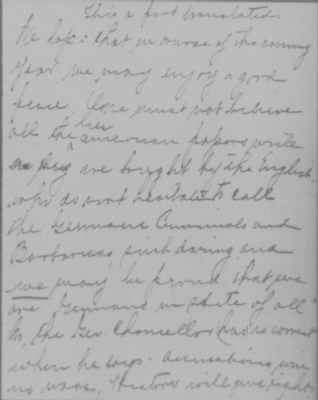 This a part translated.
We hope: that in course of the coming
Year we may enjoy a good
peace. One must not believe
all, the her american papers write
they are bought by the English.
who do not hesitate to call
the Germans Criminals and
Barbarians, such daring and
we may be proud, that we
are Germans in spite of all"
the Ger Chancellor had is correct
when he says. annexations win
no wars, History will give right